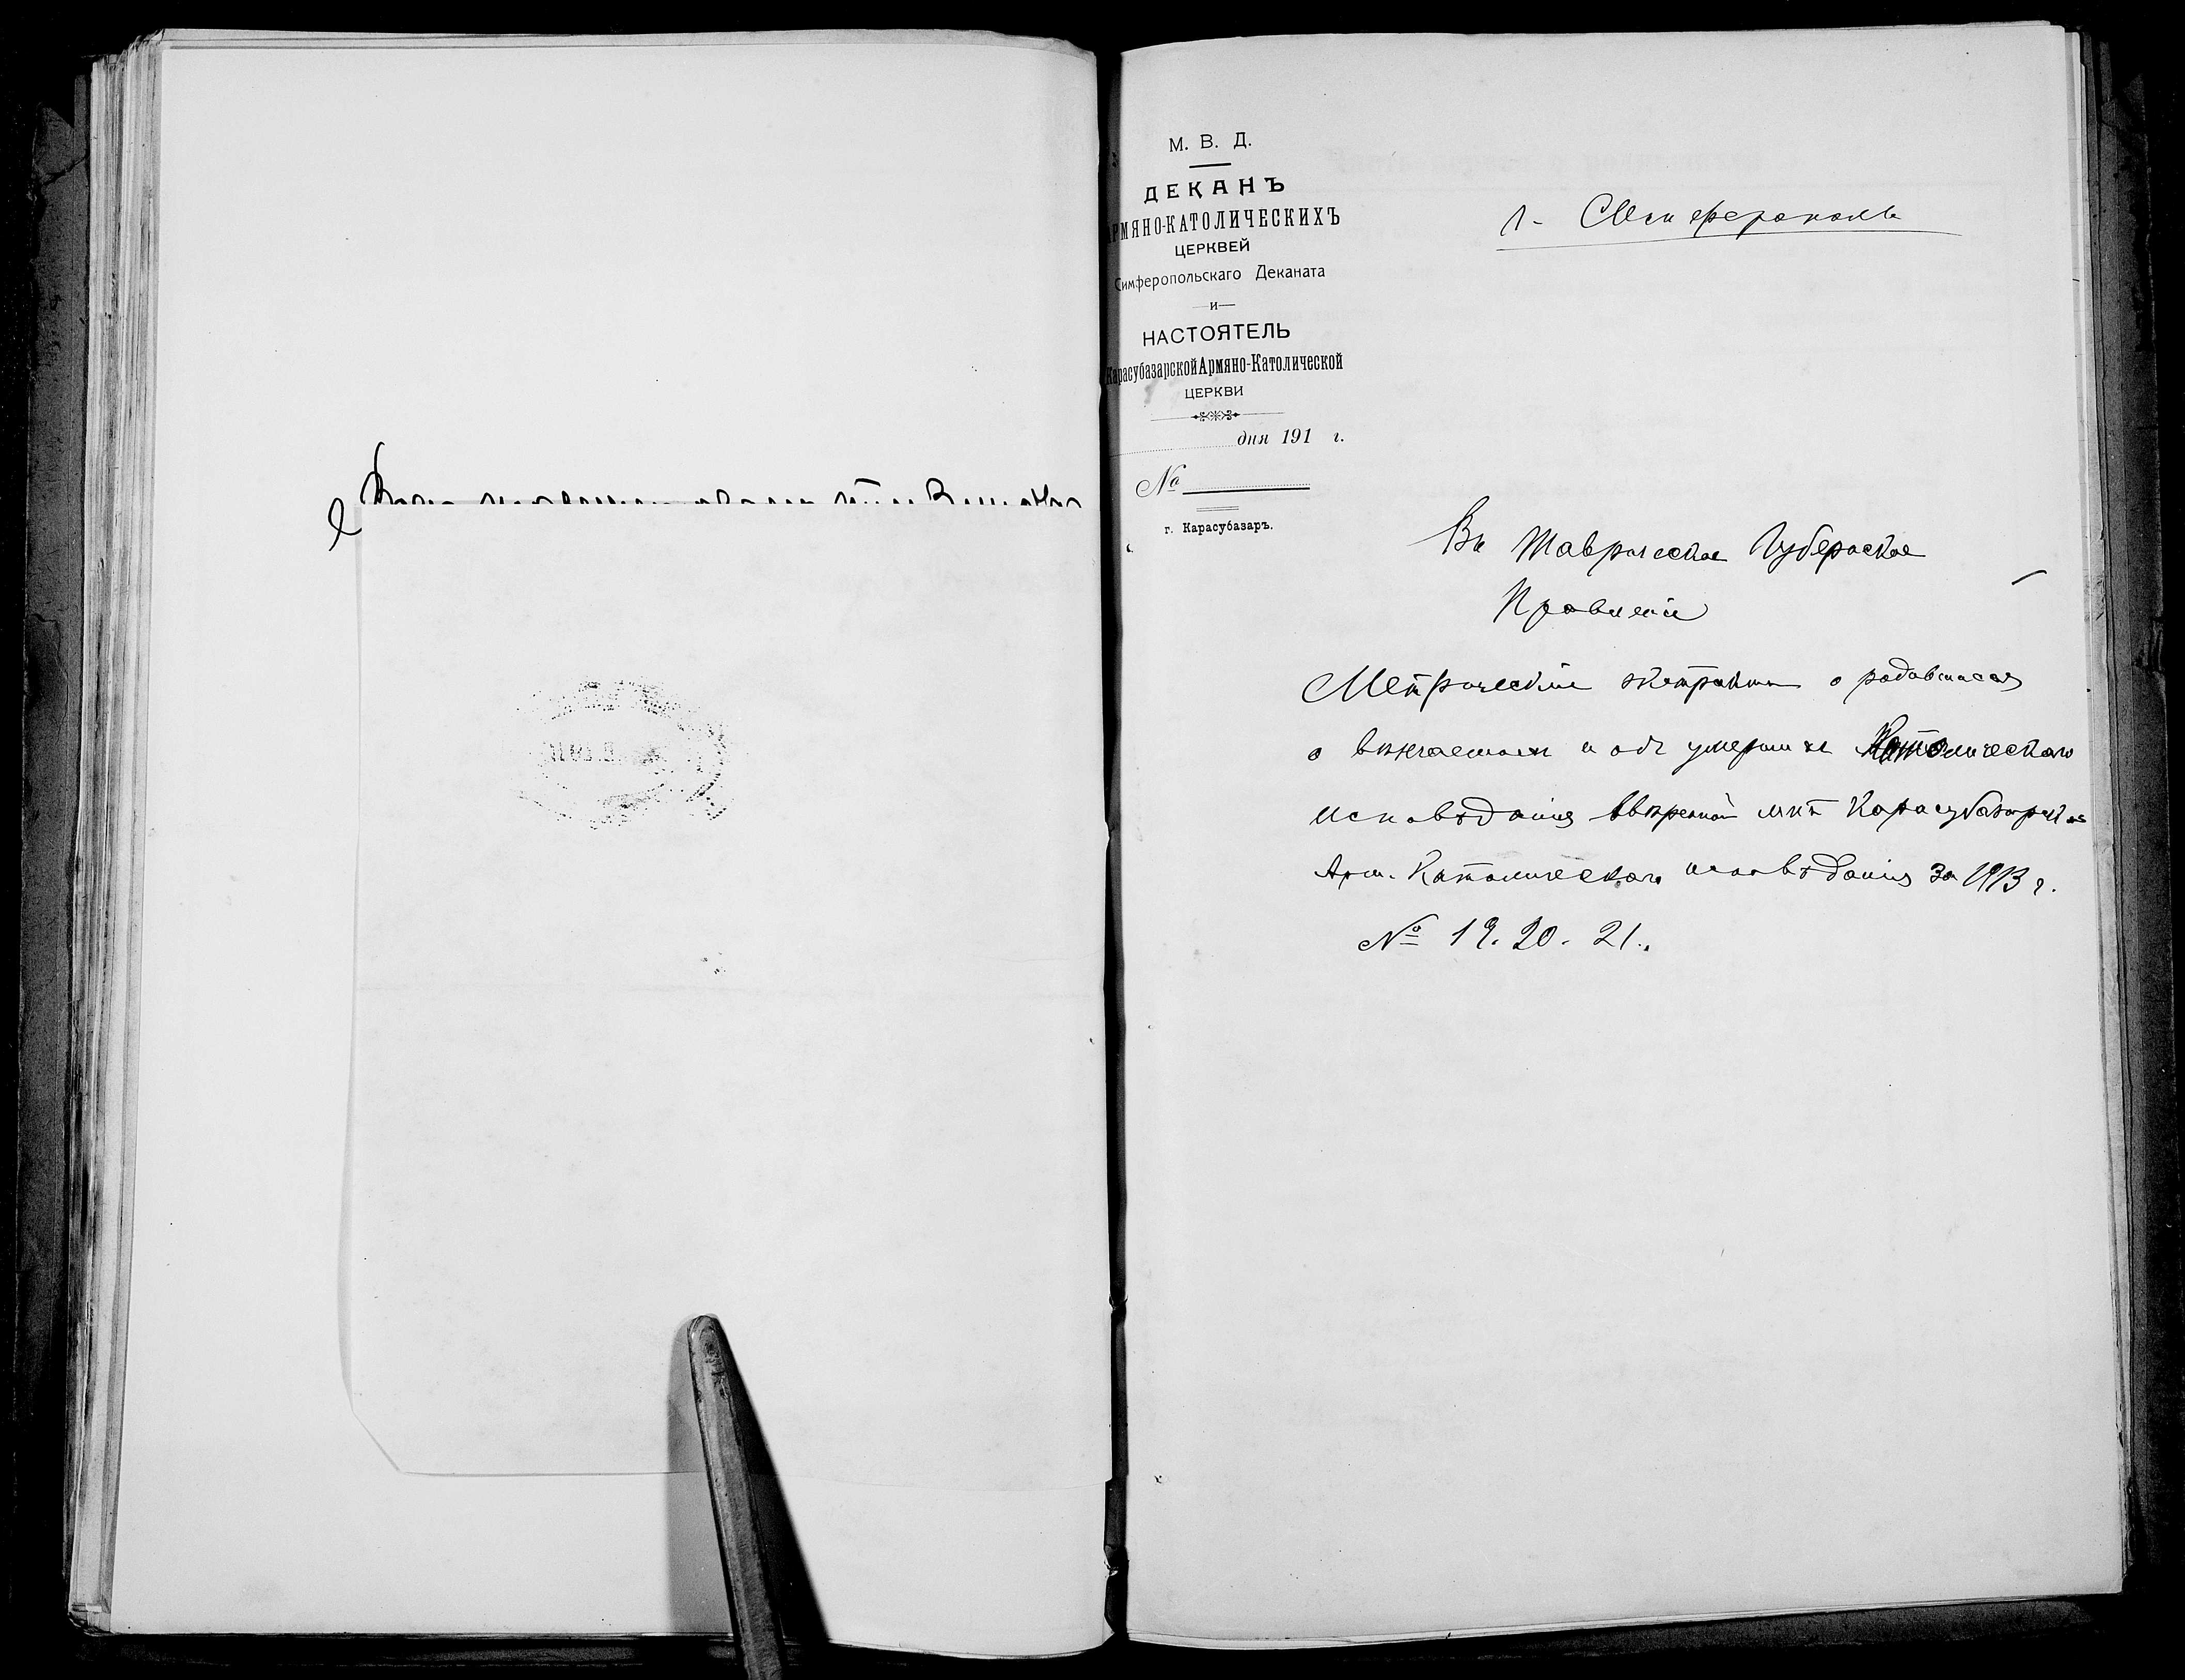 М. В. Д.
ДЕКАНЪ
АРМЯНО-КАТОЛИЧЕСКИХЪ
ЦЕРКВЕЙ
Симферопольскаго Деканата
—и—
НАСТОЯТЕЛЬ
Карасубазарской Армяно-Католической
ЦЕРКВИ
дня 191 г.
№
г. Карасубазаръ.
г. Симферополь
Въ Таврическое Губернское
Правленіе
Метрическіе экстракты о родившихся
о вѣнчаемыхъ и объ умершихъ Католическаго
исповѣданія ввѣренной мнѣ Карасубазарской
Арм. Католическаго исповѣданія за 1913 г.
№ 19. 20. 21.